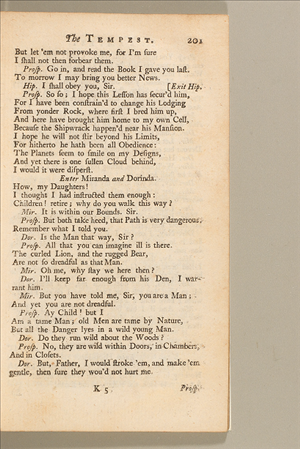 The TEMPEST. 201
But let 'em not provoke me, for I'm sure
I shall not then forbear them.
Prosp. Go in, and read the Book I gave you last.
To morrow I may bring you better News.
Hip. I shall obey you, Sir. [Exit Hip.
Prosp. So so; I hope this Lesson has secur'd him,
For I have been constrain'd to change his Lodging
From yonder Rock, where first I bred him up,
And here have brought him home to my own Cell,
Because the Shipwrack happen'd near his Mansion.
I hope he will not stir beyond his Limits,
For hitherto he hath been all Obedience:
The Planets seem to smile on my Designs,
And yet there is one sullen Cloud behind,
I would it were disperst.
Enter Miranda and Dorinda.
How, my Daughters!
I thought I had instructed them enough:
Children! retire; why do you walk this way?
Mir. It is within our Bounds. Sir.
Prosp. But both take heed, that Path is very dangerous.
Remember what I told you.
Dor. Is the Man that way, Sir?
Prosp. All that you can imagine ill is there.
The curled Lion, and the rugged Bear,
Are not so dreadful as that Man.
Mir. Oh me, why stay we here then?
Dor. I'll keep far enough from his Den, I war-
rant him.
Mir. But you have told me, Sir, you are a Man;
And yet you are not dreadful.
Prosp. Ay Child! but I
Am a tame Man; old Men are tame by Nature,
But all the Danger lyes in a wild young Man.
Dor. Do they run wild about the Woods?
Prosp. No, they are wild within Doors, in Chambers,
And in Closets.
Dor. But, Father, I would stroke 'em, and make 'em
gentle, then sure they wou'd not hurt me.
K 5 Prosp.